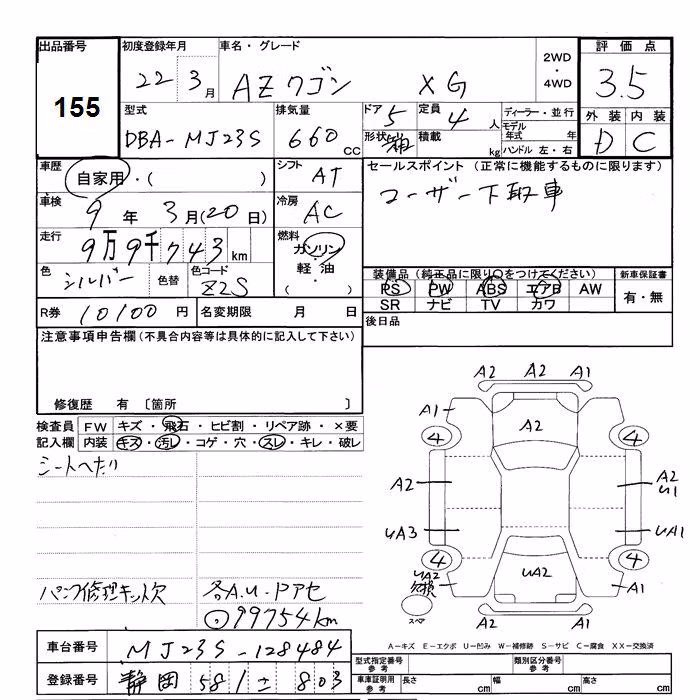 出品番号
155
初度登録年月
22 3月
車名・グレード
AZワゴン XG
2WD
・
4WD
評価点
3.5
型式
DBA-MJ23S
排気量
660cc
ドア 5
形状 箱
定員 4人
積載 kg
ディーラー・並行
モデル年式 年
ハンドル 左・右
外装 内装
D C
車歴
自家用・( )
シフト
AT
セールスポイント (正常に機能するものに限ります)
ユーザー下取車
車検
9年 3月(20日)
冷房
AC
走行
9万9千743km
燃料
ガソリン
・
軽油
・
( )
色
シルバー
色替
色コード
Z2S
装備品 (純正品に限り〇をつけてください)
PS PW ABS エアB AW
SR ナビ TV カワ
新車保証書
有・無
R券 10100円
名変期限 月 日
後日品
注意事項申告欄(不具合内容等は具体的に記入して下さい)
修復歴 有 〔箇所 〕
検査員記入欄
FW キズ・飛石・ヒビ割・リペア跡・×要
内装 キズ・汚れ・コゲ・穴・スレ・キレ・破レ
シートへたり
パンク修理キット欠
各A.U.ドアセ
99754km
A2 A2 A1
A1 A2
4 4
A2 A2
U1
UA3 UA1
4 4
UA2 欠損 UA2 A1
スペア
A2 A2 A1
A-キズ E-エクボ U-凹み W-補修跡 S-サビ C-腐食 XX-交換済
車台番号 MJ23S-128484
登録番号 静岡 581 な 803
型式指定番号
参考
類別区分番号
参考
車庫証明用
参考
長さ cm 幅 cm 高さ cm